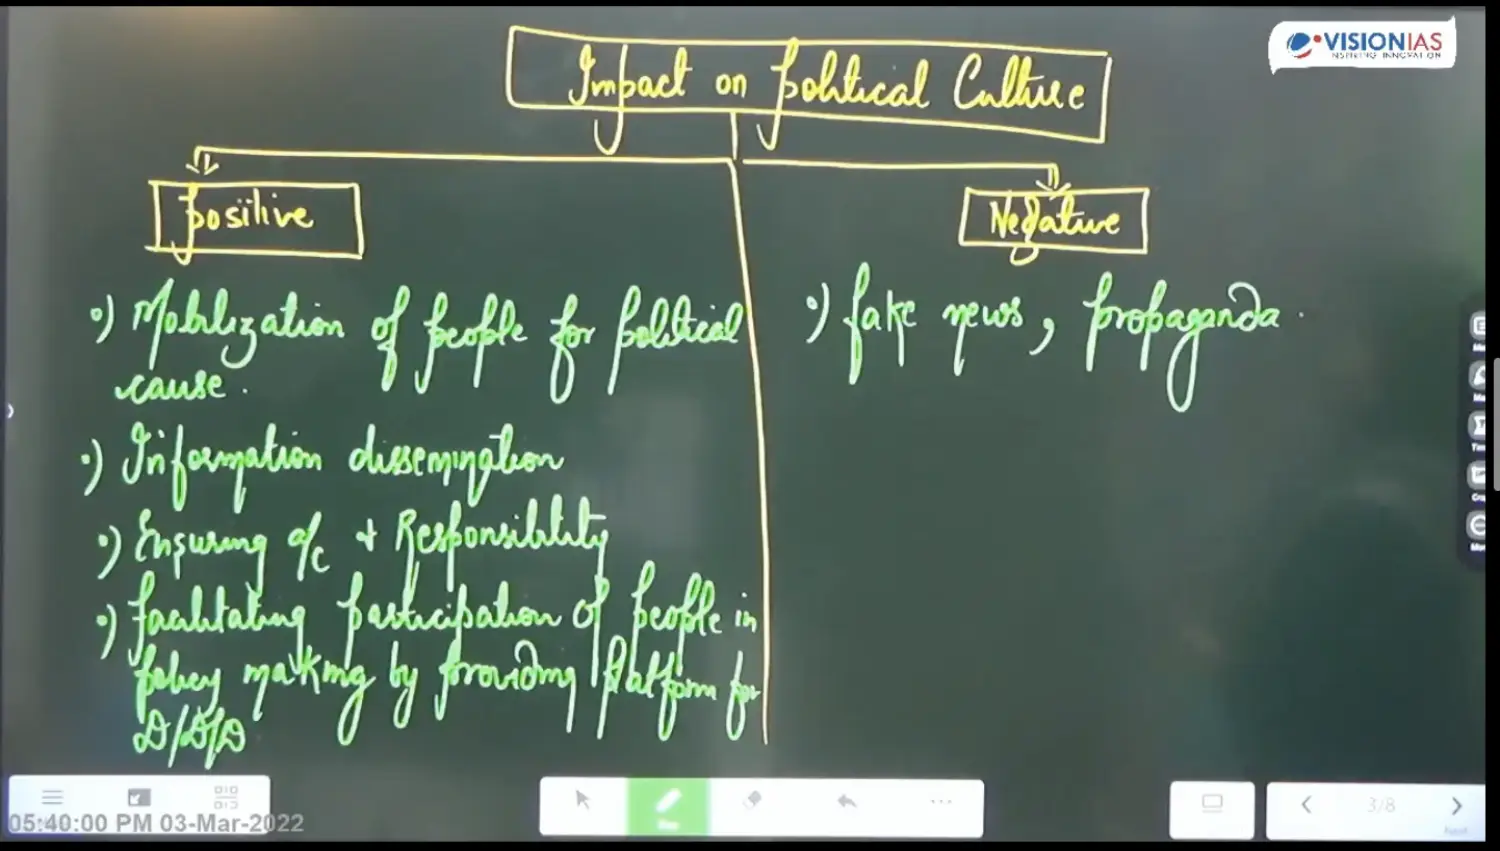 VISIONIAS
INSPIRING INNOVATION
Impact on Political Culture
Positive
Negative
•) Mobilization of people for political
cause.
•) fake news, propaganda.
•) Information dissemination
•) Ensuring a/c + Responsibility
•) facilitating participation of people in
policy making by providing platform for
D/D/D
05:40:00 PM 03-Mar-2022
3/8
Next